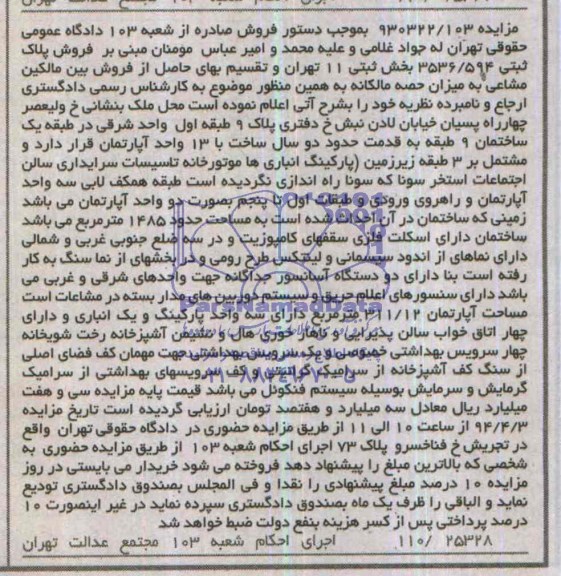 مزایده ۹۳۰۳۲۲/۱۰۳ بموجب دستور فروش صادره از شعبه ۱۰۳ دادگاه عمومی
حقوقی تهران له جواد غلامی و علیه محمد و امیر عباس مومنان مبنی بر فروش پلاک
ثبتی ۳۵۳۶/۵۹۴ بخش ثبتی ۱۱ تهران و تقسیم بهای حاصل از فروش بین مالکین
مشاعی به میزان حصه مالکانه به همین منظور موضوع به کارشناس رسمی دادگستری
ارجاع و نامبرده نظریه خود را بشرح آتی اعلام نموده است محل ملک بنشانی خ ولیعصر
چهارراه پسیان خیابان لادن نبش خ دفتری پلاک ۹ طبقه اول واحد شرقی در طبقه یک
ساختمان ۹ طبقه به قدمت حدود دو سال ساخت با ۱۳ واحد آپارتمان قرار دارد و
مشتمل بر ۳ طبقه زیرزمین (پارکینگ انباری ها موتورخانه تاسیسات سرایداری سالن
اجتماعات استخر سونا که سونا راه اندازی نگردیده است طبقه همکف لابی سه واحد
آپارتمان و راهروی ورودی و طبقات اول تا پنجم بصورت دو واحد آپارتمان می باشد
زمینی که ساختمان در آن احداث شده است به مساحت حدود ۱۴۸۵ مترمربع می باشد
ساختمان دارای اسکلت فلزی سقفهای کامپوزیت و در سه ضلع جنوبی غربی و شمالی
دارای نماهای از اندود سیمانی و لیتکس طرح رومی و در بخشهای از نما سنگ به کار
رفته است بنا دارای دو دستگاه آسانسور جداگانه جهت واحدهای شرقی و غربی می
باشد دارای سنسورهای اعلام حریق و سیستم دوربین های مدار بسته در مشاعات است
مساحت آپارتمان ۳۱۱/۱۲ مترمربع دارای سه واحد پارکینگ و یک انباری و دارای
چهار اتاق خواب سالن پذیرایی و ناهار خوری هال و نشیمن آشپزخانه رخت شویخانه
چهار سرویس بهداشتی خصوصی و یک سرویس بهداشتی جهت مهمان کف فضای اصلی
از سنگ کف آشپزخانه از سرامیک گرانیتی و کف سرویسهای بهداشتی از سرامیک
گرمایش و سرمایش بوسیله سیستم فنکوئل می باشد قیمت پایه مزایده سی و هفت
میلیارد ریال معادل سه میلیارد و هفتصد تومان ارزیابی گردیده است تاریخ مزایده
۹۴/۴/۳ از ساعت ۱۰ الی ۱۱ از طریق مزایده حضوری در دادگاه حقوقی تهران واقع
در تجریش خ فناخسرو پلاک ۷۳ اجرای احکام شعبه ۱۰۳ از طریق مزایده حضوری به
شخصی که بالاترین مبلغ را پیشنهاد دهد فروخته می شود خریدار می بایستی در روز
مزایده ۱۰ درصد مبلغ پیشنهادی را نقدا و فی المجلس بصندوق دادگستری تودیع
نماید و الباقی را ظرف یک ماه بصندوق دادگستری سپرده نماید در غیر اینصورت ۱۰
درصد پرداختی پس از کسر هزینه بنفع دولت ضبط خواهد شد
۱۱۰/ ۲۵۳۲۸ اجرای احکام شعبه ۱۰۳ مجتمع عدالت تهران
ParsNamadData